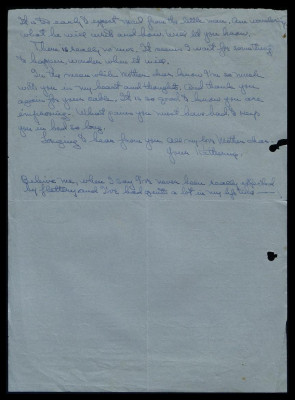 It is too early to expect mail from the little man. Am wondering
what he will write and how, will let you know.
There is really no news. It seems I wait for something
to happen, wonder when it will.
In the mean while Mother dear know I'm so much
with you in my heart and thoughts. And thank you
again for your cable. It is so good to know you are
improving. What pains you must have had to keep
you in bed so long.
Longing to hear from you. All my love Mother dear
Your
Believe me, when I say I've never been really affected
by flattery and I've had quite a lot in my life time